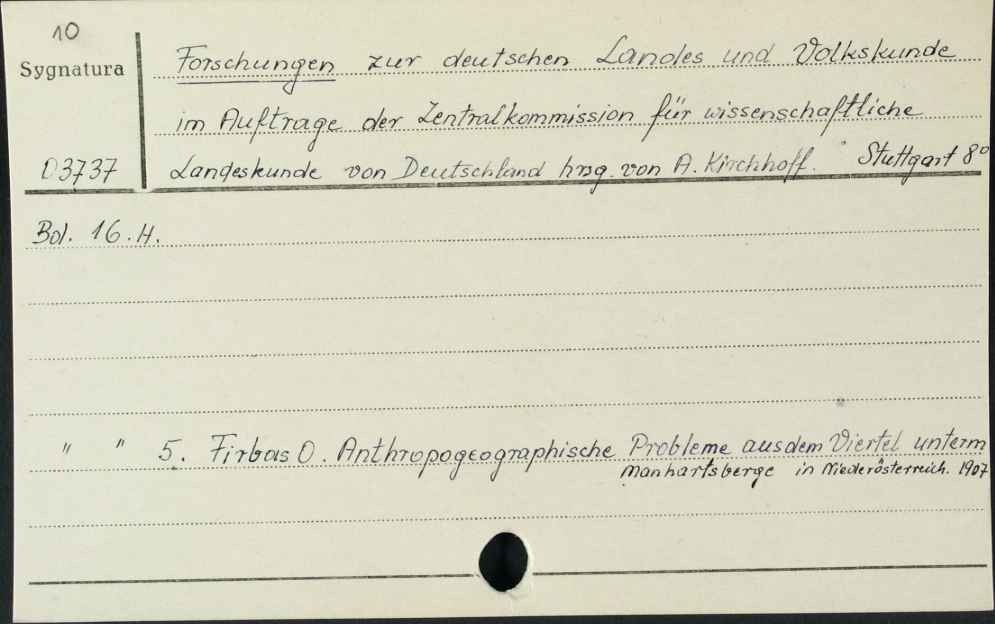 10
Sygnatura
Forschungen zur deutschen Landes und Volkskunde
im Auftrage der Zentralkommission für wissenschaftliche
D3737 Landeskunde von Deutschland hrsg. von A. Kirchhoff. Stuttgart 8°
Bd. 16. H.
" " 5. Firbas O. Anthropogeographische Probleme aus dem Viertel unterm
Manhartsberge in Niederösterreich. 1907